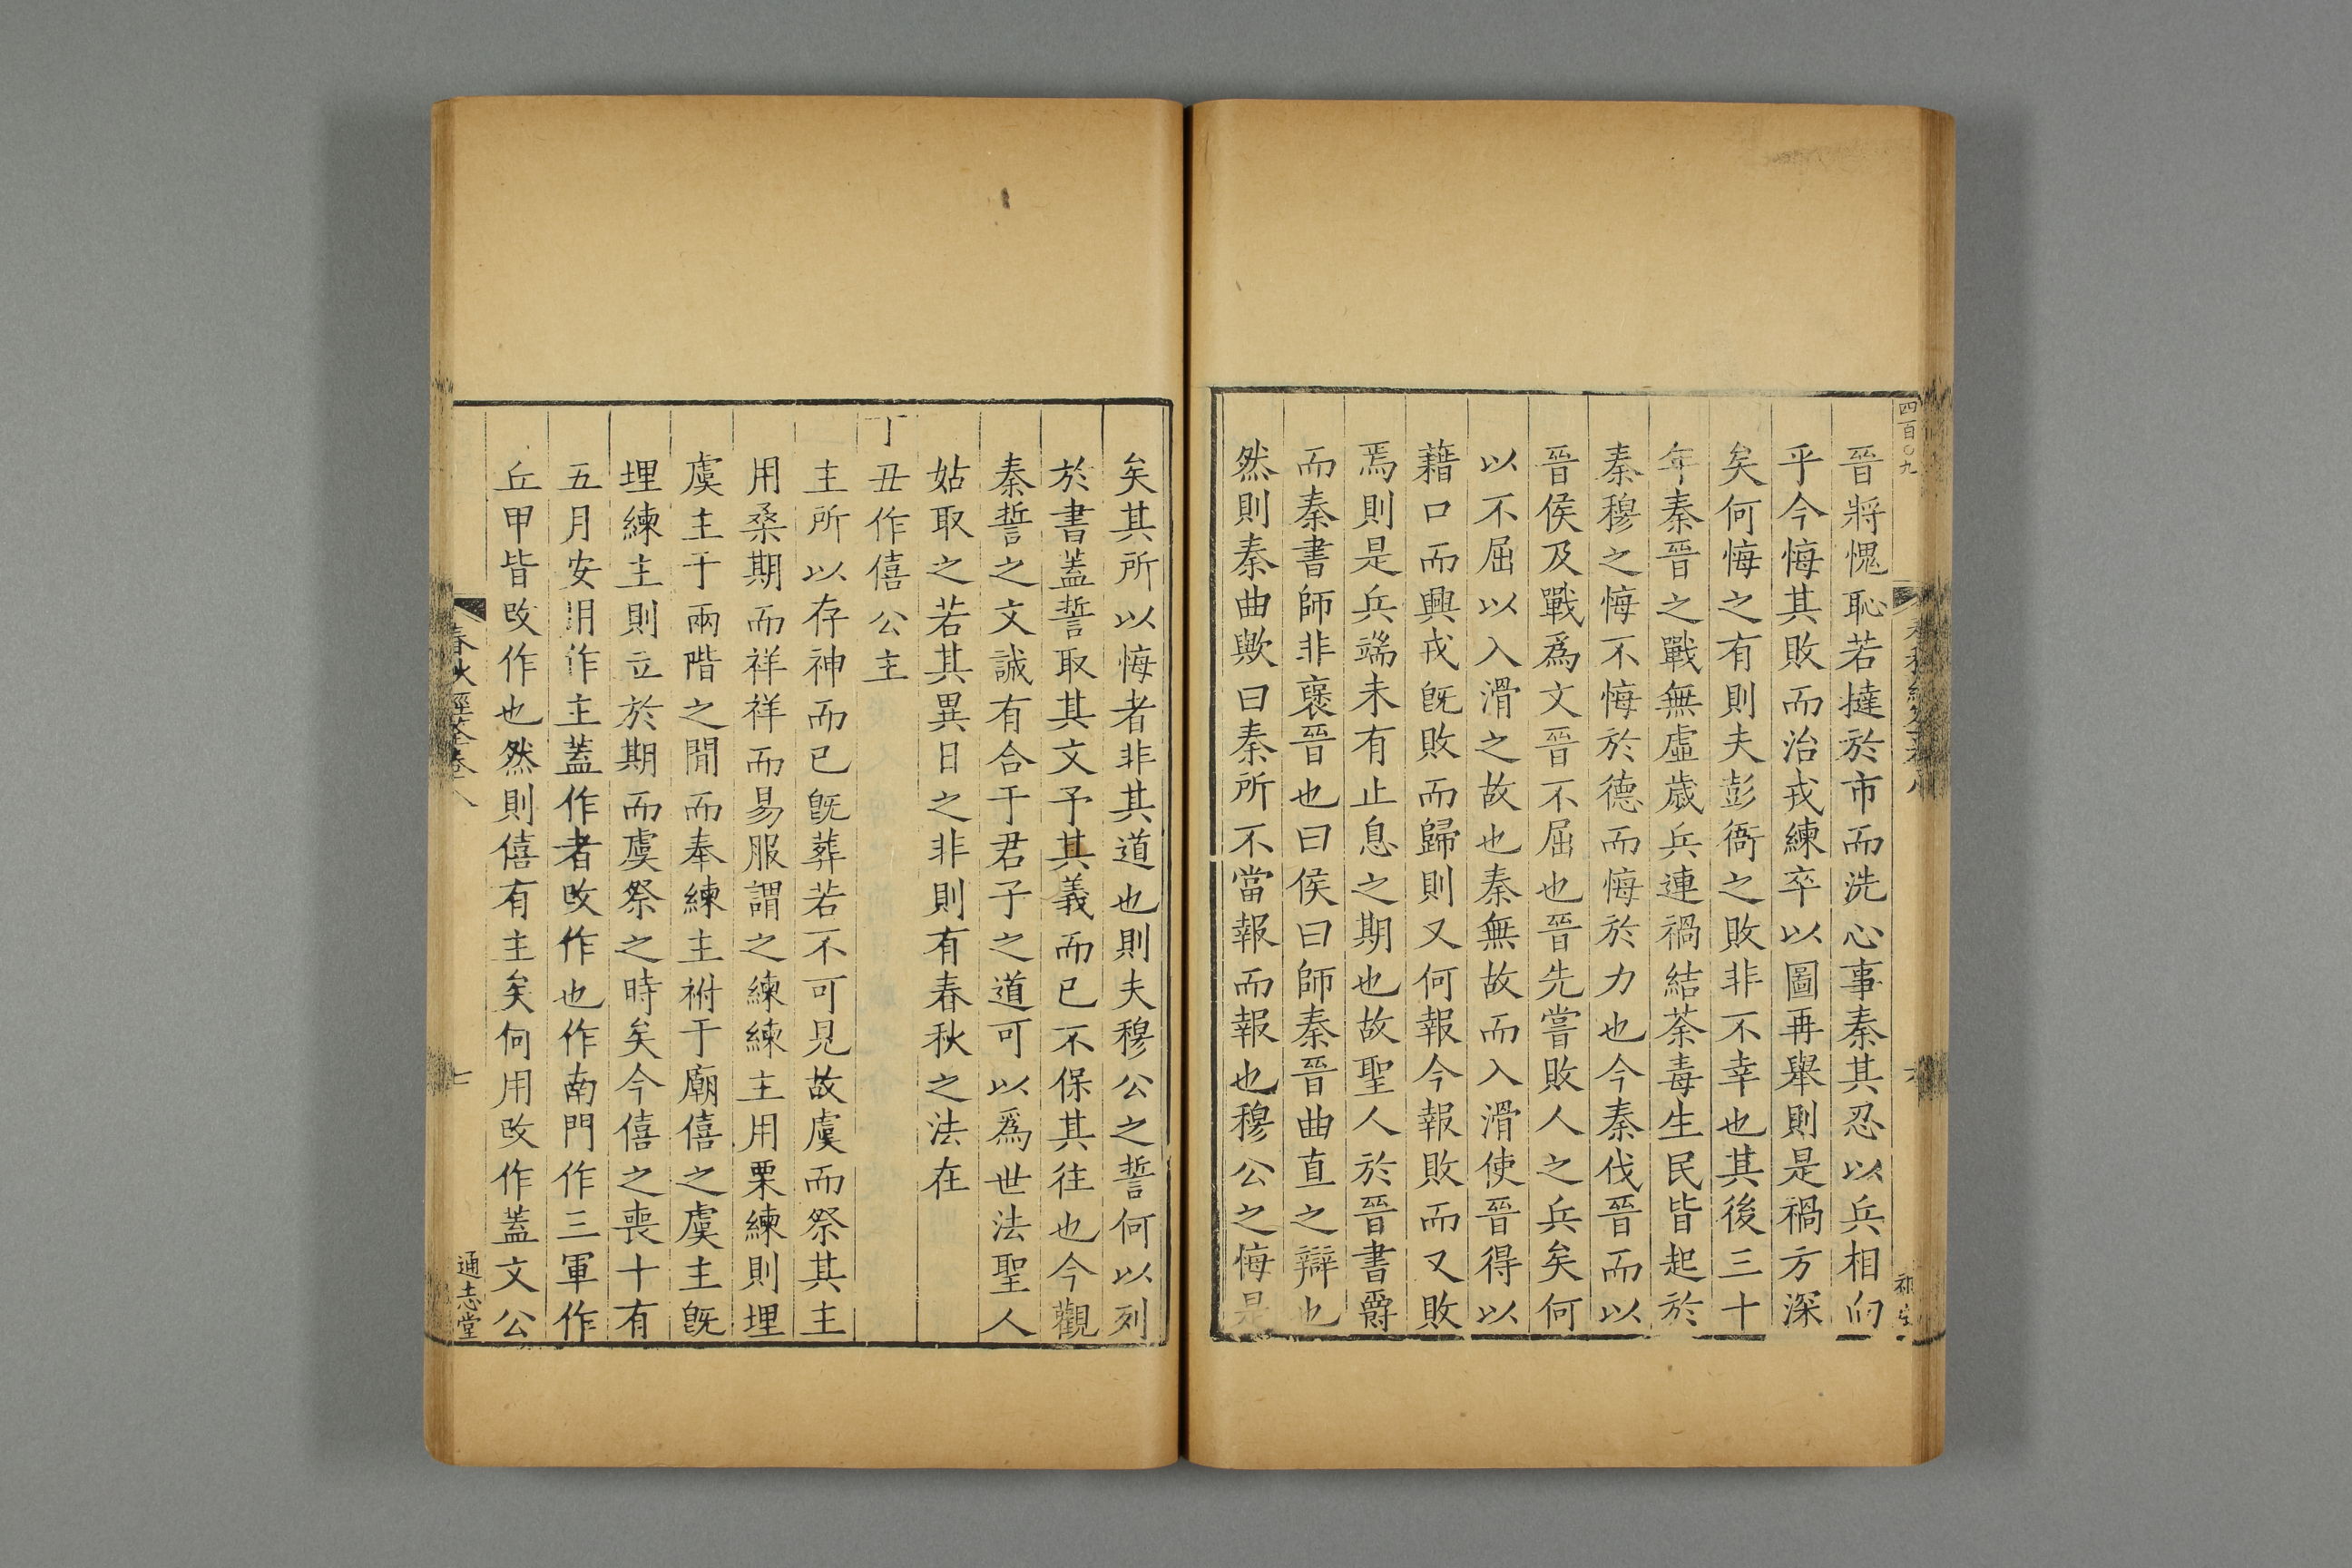 四百〇九
晉將愧恥若撻於市而洗心事秦其忍以兵相向
乎今悔其敗而治戎練卒以圖再舉則是禍方深
矣何悔之有則夫彭衙之敗非不幸也其後三十
年秦晉之戰無虛歲兵連禍結荼毒生民皆起於
秦穆之悔不悔於德而悔於力也今秦伐晉而以
晉侯及戰爲文晉不屈也晉先嘗敗人之兵矣何
以不屈以入滑之故也秦無故而入滑使晉得以
藉口而興戎旣敗而歸則又何報今報敗而又敗
焉則是兵端未有止息之期也故聖人於晉書爵
而秦書師非襃晉也曰侯曰師秦晉曲直之辯也
然則秦曲歟曰秦所不當報而報也穆公之悔是
矣其所以悔者非其道也則夫穆公之誓何以列
於書蓋誓取其文予其義而已不保其往也今觀
秦誓之文誠有合于君子之道可以爲世法聖人
姑取之若其異日之非則有春秋之法在
丁丑作僖公主
主所以存神而已旣葬若不可見故虞而祭其主
用桑期而祥祥而易服謂之練練主用栗練則埋
虞主于兩階之閒而奉練主祔于廟僖之虞主旣
埋練主則立於期而虞祭之時矣今僖之喪十有
五月安用作主蓋作者改作也作南門作三軍作
丘甲皆改作也然則僖有主矣何用改作蓋文公
春秋經筌卷八
七
通志堂